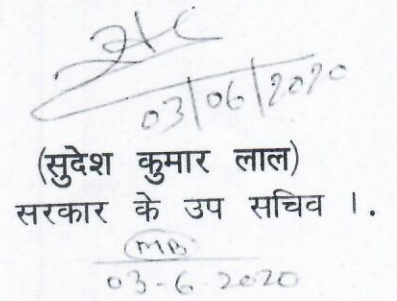 03/06/2020
(सुदेश कुमार लाल)
सरकार के उप सचिव ।.
MB
03-6-2020